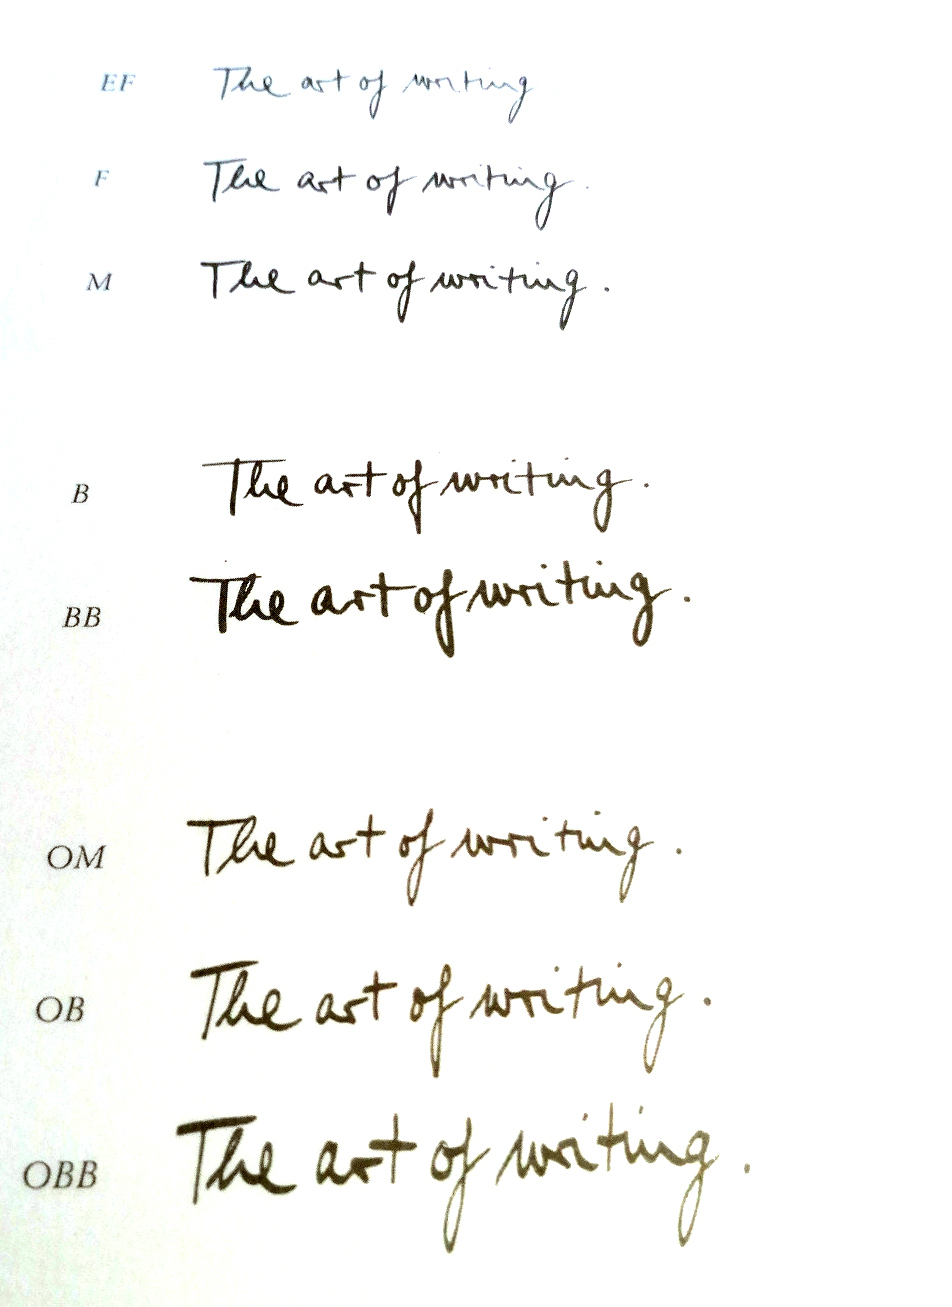 EF The art of writing
F The art of writing.
M The art of writing.
B The art of writing.
BB The art of writing.
OM The art of writing.
OB The art of writing.
OBB The art of writing.